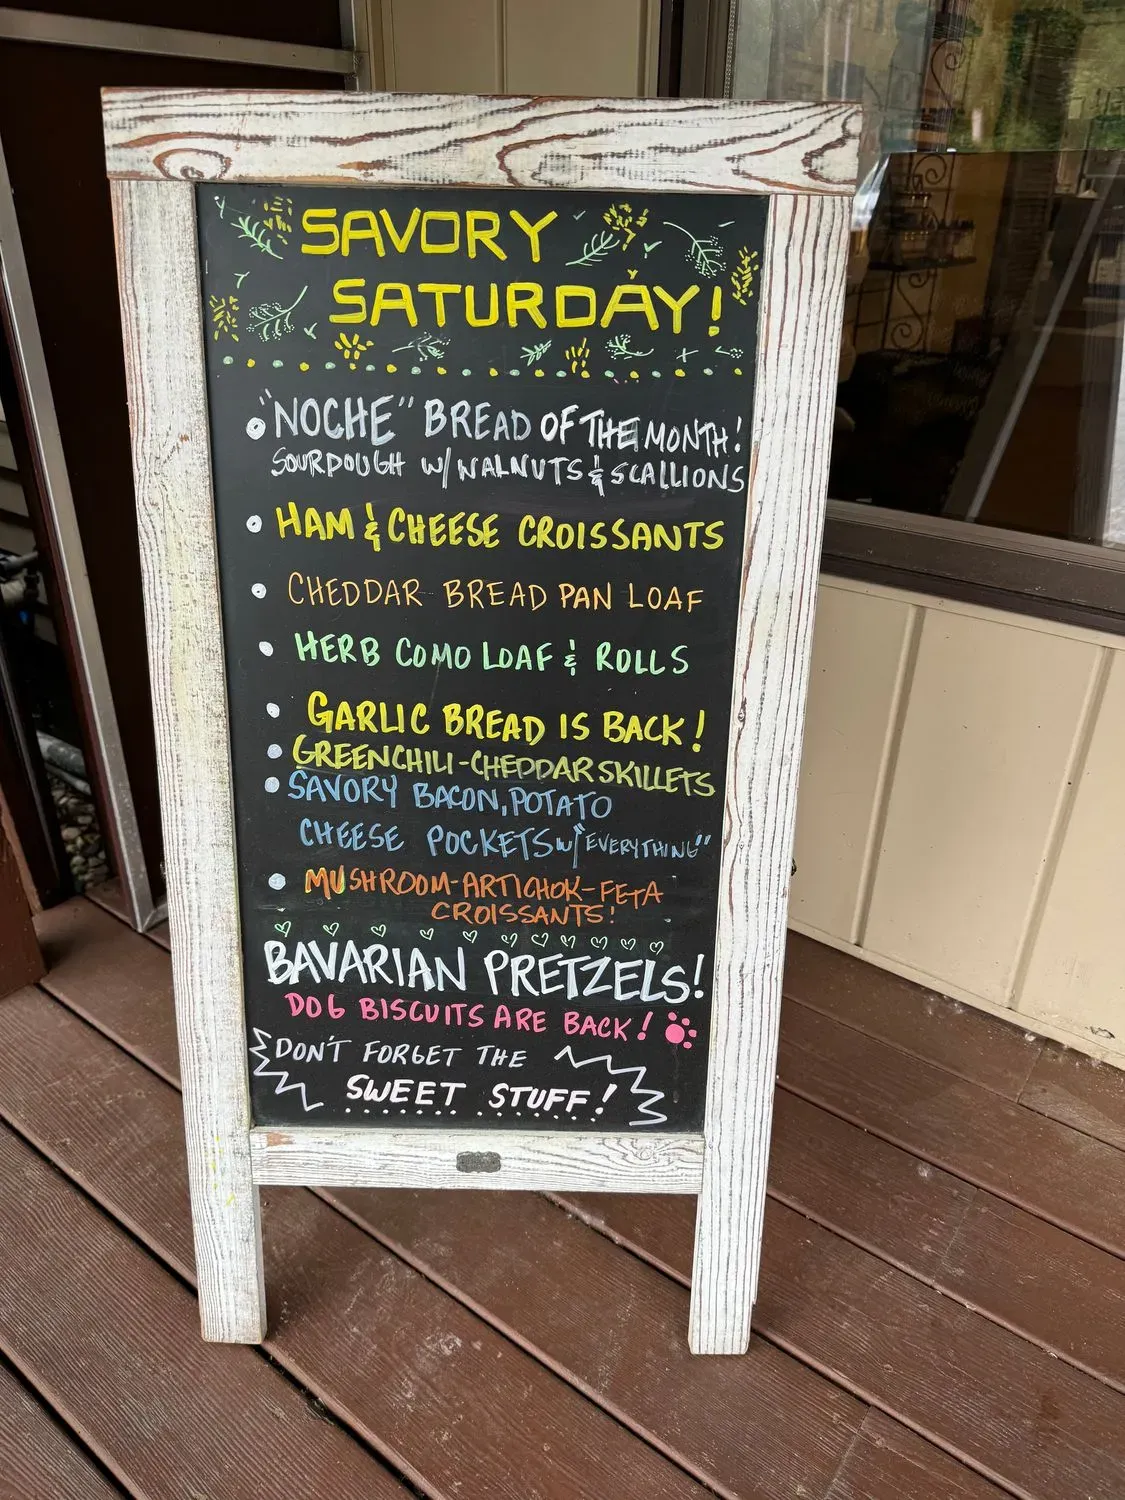 SAVORY
SATURDAY!
"NOCHE" BREAD OF THE MONTH!
SOURDOUGH W/ WALNUTS & SCALLIONS
HAM & CHEESE CROISSANTS
CHEDDAR BREAD PAN LOAF
HERB COMO LOAF & ROLLS
GARLIC BREAD IS BACK!
GREENCHILI-CHEDDAR SKILLETS
SAVORY BACON, POTATO
CHEESE POCKETS W/ "EVERYTHING"
MUSHROOM-ARTICHOK-FETA
CROISSANTS!
BAVARIAN PRETZELS!
DOG BISCUITS ARE BACK!
DON'T FORGET THE
SWEET STUFF!